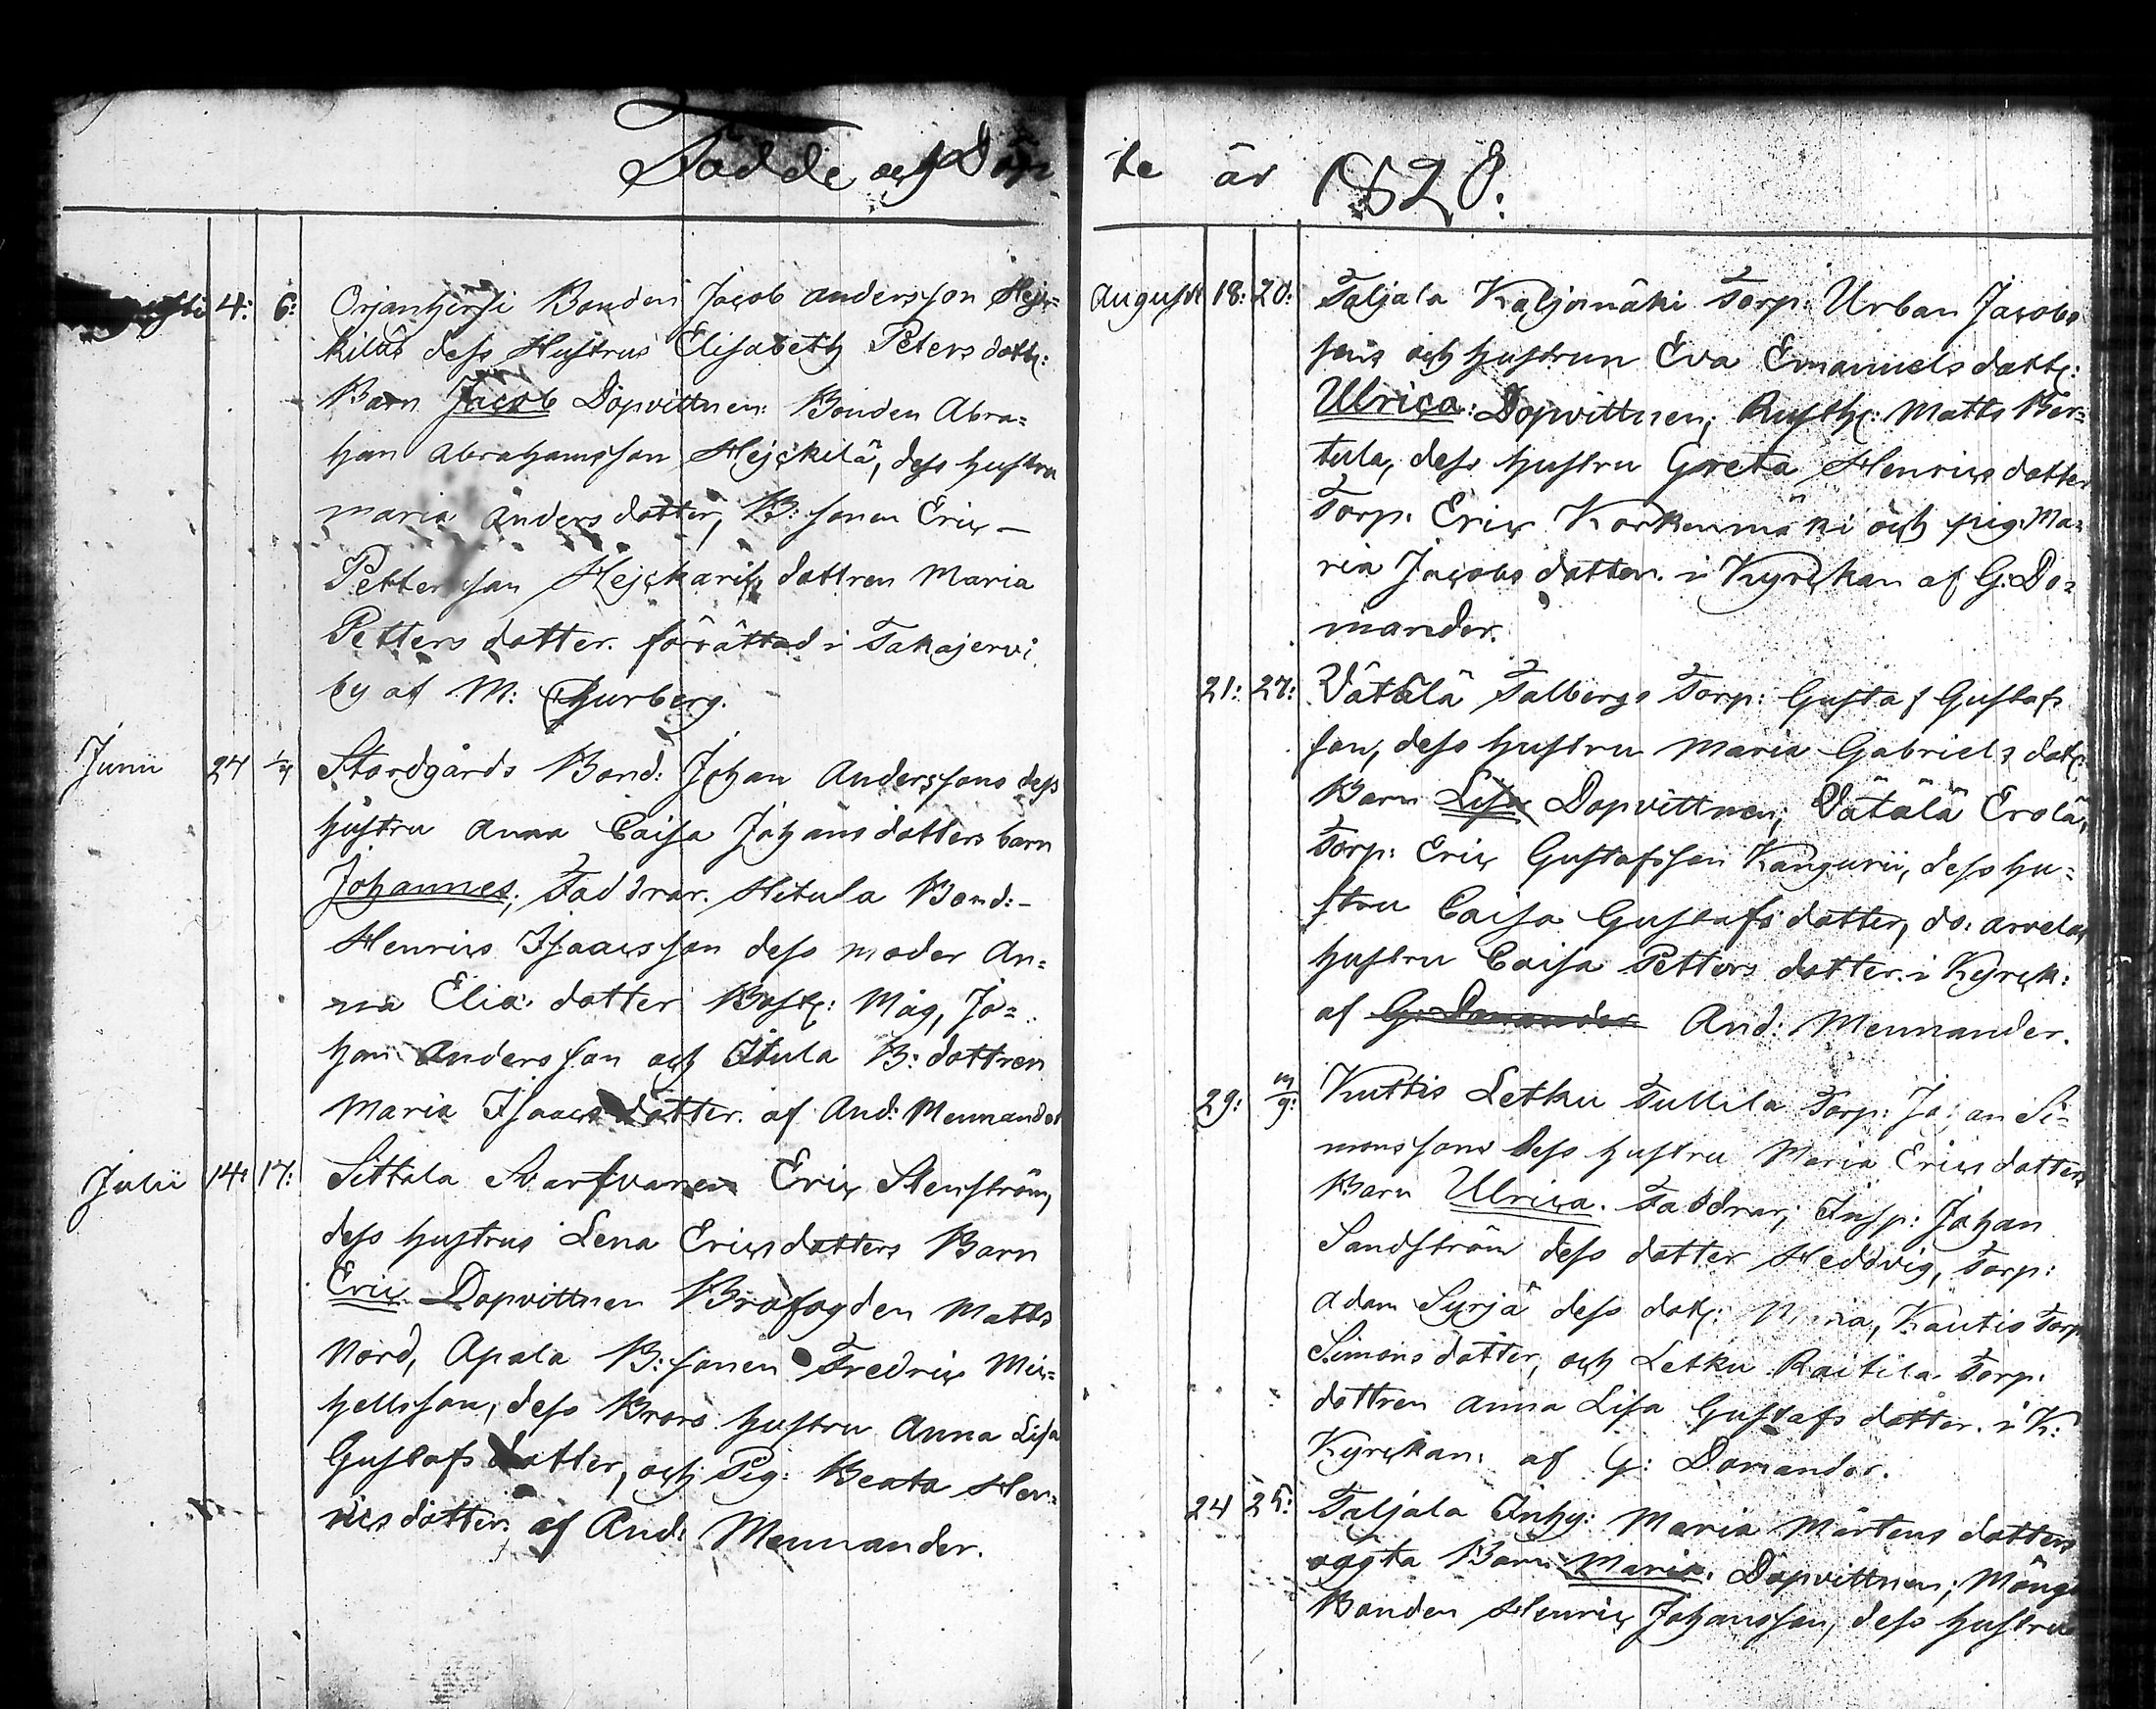 Födde och Döp
te år 1820:
4: 6: Orjanhjersi Bonden Jacob Andersson Hejc-
kiläs dess Hustrus Elisabeth Peters dott:
Barn Jacob Dopvittnen: Bonden Abra=
ham Abrahamsson Hejckilä, dess hustru
Maria Anders dotter, B: sonen Eric –
Pettersson Hejckari dottren Maria
Petters dotter. förrättad i Takajervi
by af M: Thurberg.
Junii 27 1/7 Stordgårds Bond: Johan Anderssons dess
hustru Anna Caisa Johans dotters barn
Johannes; Faddrar. Hitula Bond:-
Henrics Isaacsson dess moder An=
na Elia: dotter Måg, Jo=
han Andersson och Itula B: dottren
Maria Isaacs dotter. af And: Mennander
Julii 14: 17: Sittala Svarfvaren Eric Stenström,
dess hustrus Lena Ericsdotters Barn
Eric Dopvittnen Brofogden Matts
Nord, Apala B: sonen Fredric Mic=
hellsson, dess Brors hustru Anna Lisa
Gustafs dotter, och Pig: Beata Hen=
rics dotter. af And: Mennander.
Augusti 18: 20: Taljala Kaljamäki Torp: Urban Jacobs
sons och hustrun Eva Emanuels dott:
Ulrica: Dopvittnen; Rusth: Matts Ber=
tula, dess hustru Greta Henrics dotter
Torp: Eric Korkenmäki och pig: Ma=
ria Jacobs dotter. i Kyrckan af G: Do=
mander.
21: 27: Vätälä Talbergs Torp: Gustaf Gustafs
son, dess hustru Maria Gabriels dott:
Barn Lisa Dopvittnen; Vätälä Erolä,
Torp: Eric Gustafsson Kangurii, dess hu=
stru Caisa Gustafs dotter, do: Arvelas
hustru Caisa Petters dotter. i Kyrck:
af G: Domander And: Mennander.
29: Kuttis Letku Tullila Torp: Johan Si=
mons sons dess hustru Maria Erics dotters
Barn Ulrica. Faddrar; Insp: Johan
Sandström dess dotter Hedvig, Torp:
Adam Syrjä dess dott: Maria, Kautis Torp
Simons dotter, och Letku Raitila Torp:
dottren Anna Lisa Gustafs dotter. i K:
Kyrckan: af G: Domander.
24 25: Taljala Inhy: Maria Mårtens dotters
oägta Barn Maria. Dopvittnen; Månge
Bonden Henric Johansson, dess hustru